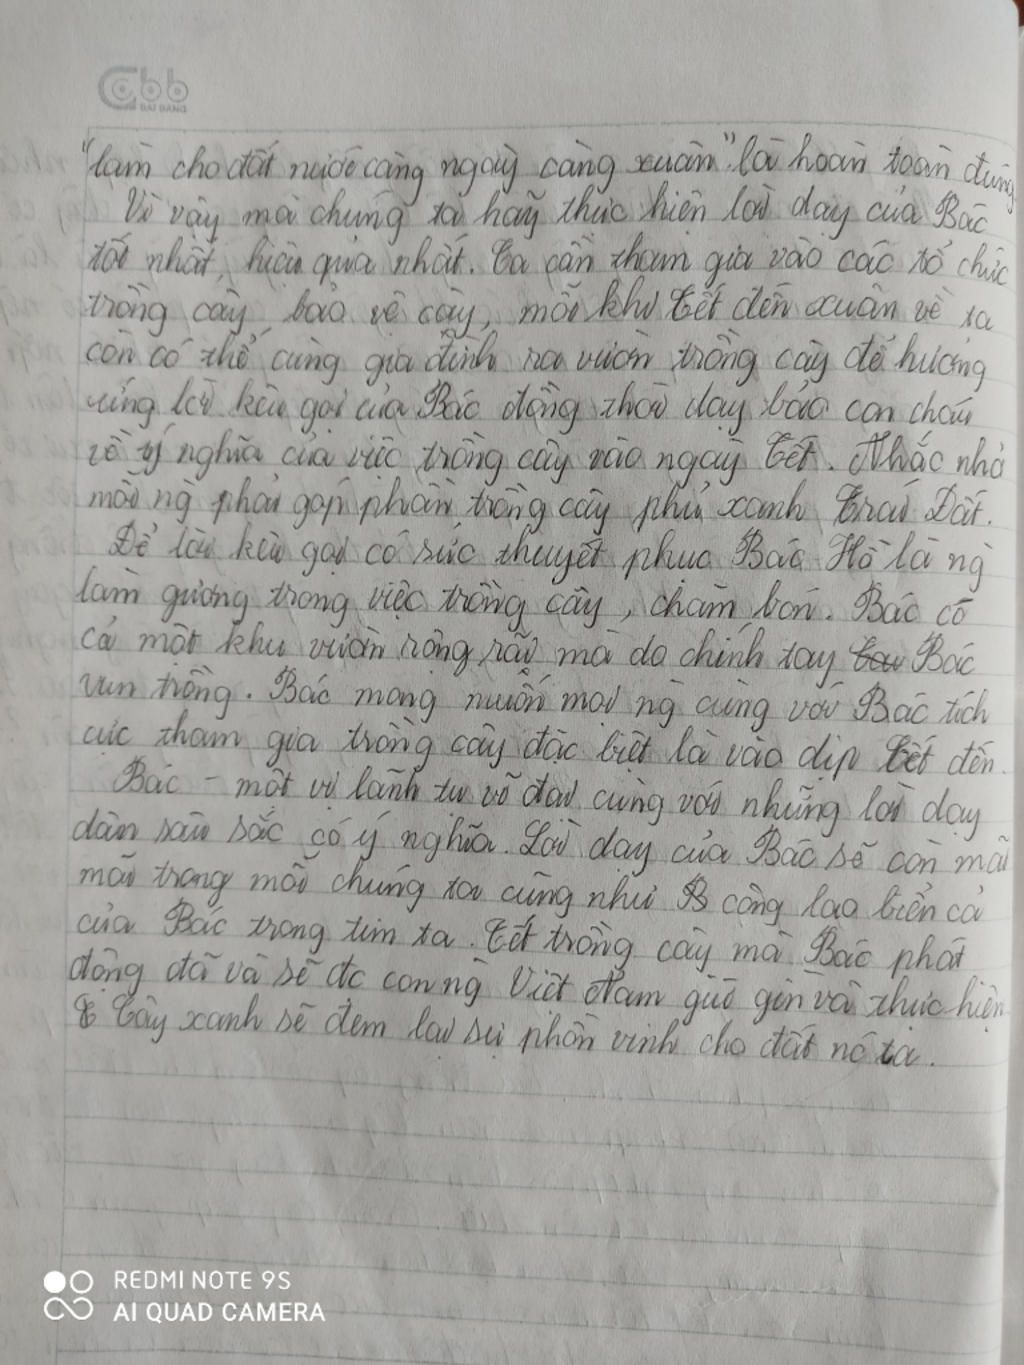 Cbb
ĐẠI ĐANG
"làm cho đất nước càng ngày càng xuân" là hoàn toàn đúng
Vì vậy mà chúng ta hãy thực hiện lời dạy của Bác
tốt nhất, hiệu quả nhất. Ta cần tham gia vào các tổ chức
trồng cây, bảo vệ cây, mỗi khi Tết đến xuân về ta
còn có thể cùng gia đình ra vườn trồng cây để hưởng
ứng lời kêu gọi của Bác đồng thời dạy bảo con cháu
về ý nghĩa của việc trồng cây vào ngày Tết. Nhắc nhở
mọi ng phải góp phần trồng cây phủ xanh Trái Đất.
Để lời kêu gọi có sức thuyết phục Bác Hồ là ng
làm gương trong việc trồng cây, chăm bón. Bác có
cả một khu vườn rộng rãi mà do chính tay Bác
vun trồng. Bác mong muốn mọi ng cùng với Bác tích
cực tham gia trồng cây đặc biệt là vào dịp Tết đến.
Bác - một vị lãnh tụ vĩ đại cùng với những lời dạy
dàn sâu sắc có ý nghĩa. Lời dạy của Bác sẽ còn mãi
mãi trong mỗi chúng ta cũng như công lao biển cả
của Bác trong tim ta. Tết trồng cây mà Bác phát
động đã và sẽ đc con ng Việt Nam giữ gìn và thực hiện
Cây xanh sẽ đem lại sự phồn vinh cho đất nc ta.
REDMI NOTE 9S
AI QUAD CAMERA